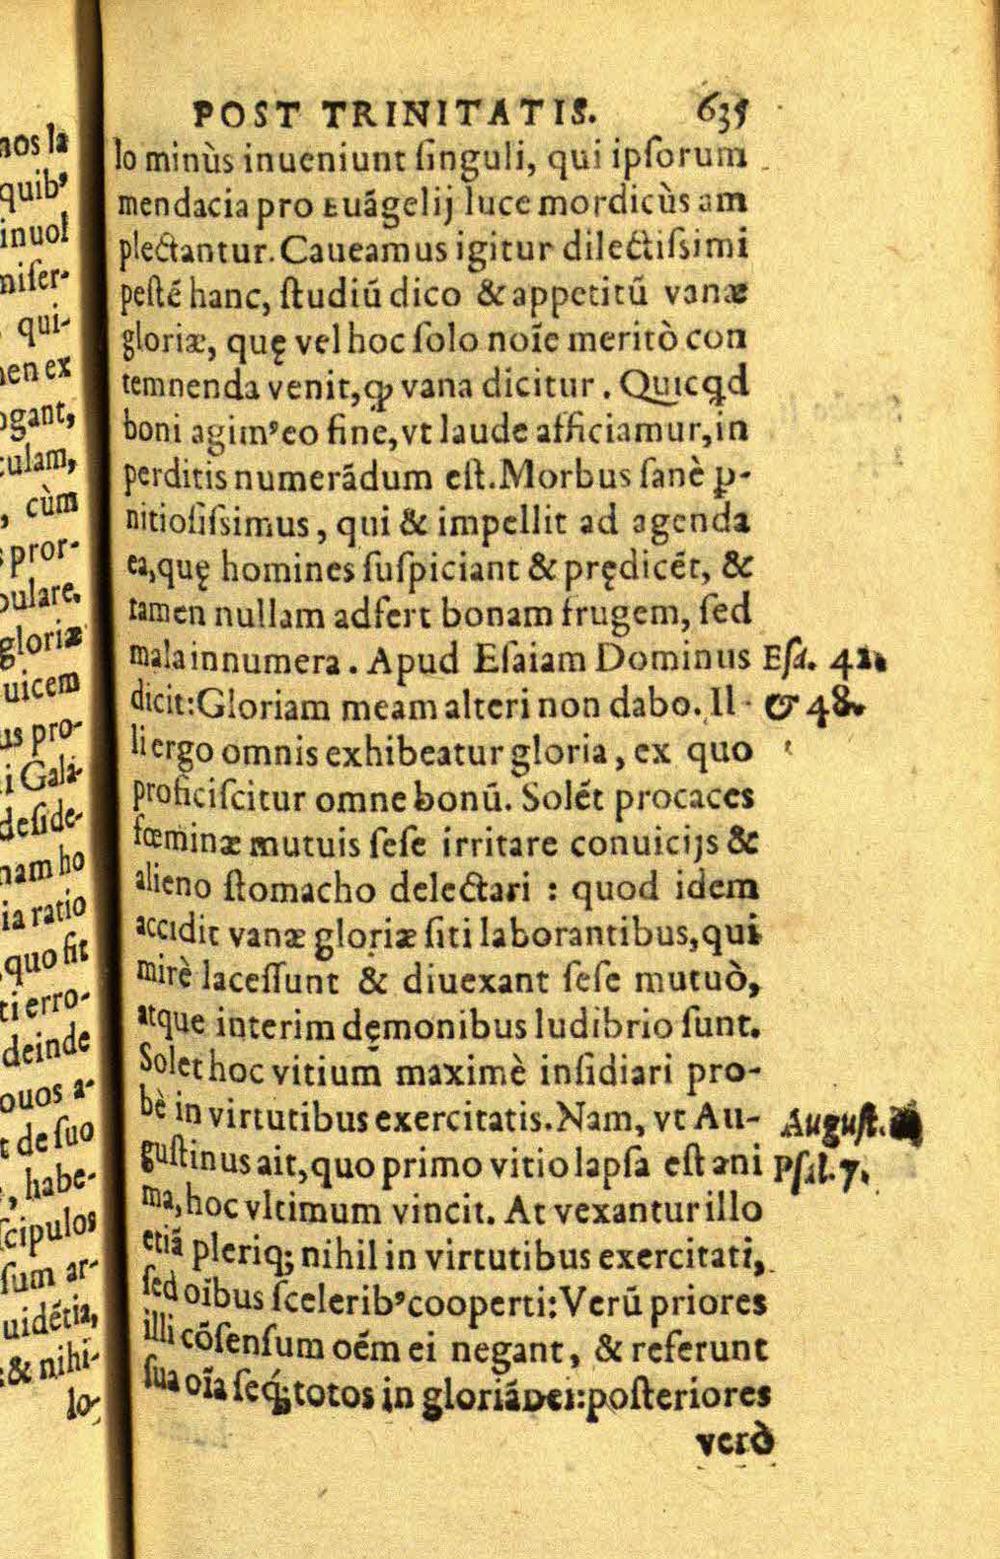 POST TRINITATIS. 635
lo minùs inueniunt ſinguli, qui ipſorum
mendacia pro Euãgelij luce mordicùs am
plectantur. Caueamus igitur dilectiſsimi
peſtẽ hanc, ſtudiũ dico & appetitũ vanæ
gloriæ, quę vel hoc ſolo noĩe meritò con
temnenda venit, ꝙ vana dicitur. Quicꝗd
boni agimꝰ eo fine, vt laude afficiamur, in
perditis numerãdum eſt. Morbus ſanè ꝑ-
nitioſiſsimus, qui & impellit ad agenda
ea, quę homines ſuſpiciant & prędicẽt, &
tamen nullam adfert bonam frugem, ſed
mala innumera. Apud Eſaiam Dominus
Eſa. 42.
dicit: Gloriam meam alteri non dabo. Il-
& 48.
li ergo omnis exhibeatur gloria, ex quo
proficiſcitur omne bonũ. Solẽt procaces
fœminæ mutuis ſeſe irritare conuicijs &
alieno ſtomacho delectari: quod idem
accidit vanæ gloriæ ſiti laborantibus, qui
mirè laceſſunt & diuexant ſeſe mutuò,
atque interim dęmonibus ludibrio ſunt.
Solet hoc vitium maximè inſidiari pro-
bè in virtutibus exercitatis. Nam, vt Au-
Auguſt.
guſtinus ait, quo primo vitio lapſa eſt ani
Pſal. 7.
ma, hoc vltimum vincit. At vexantur illo
etiã pleriq; nihil in virtutibus exercitati,
ſed oĩbus ſceleribꝰ cooperti: Verũ priores
illi cõſenſum oẽm ei negant, & referunt
ſua oĩa ſeq́; totos in gloriã DEI: poſteriores
verò
nos la
quibꝰ
inuol
miſer-
qui-
men ex
ogant,
culam,
, cùm
pror-
pulare.
gloriæ
uicem
us pro-
i Gala-
deſide-
nam ho
ia ratio
quo fit
ti erro-
deinde
ouos a-
t de ſuo
, habe-
ſcipulos
ſum ar-
uidẽtia,
& nihi-
lo-